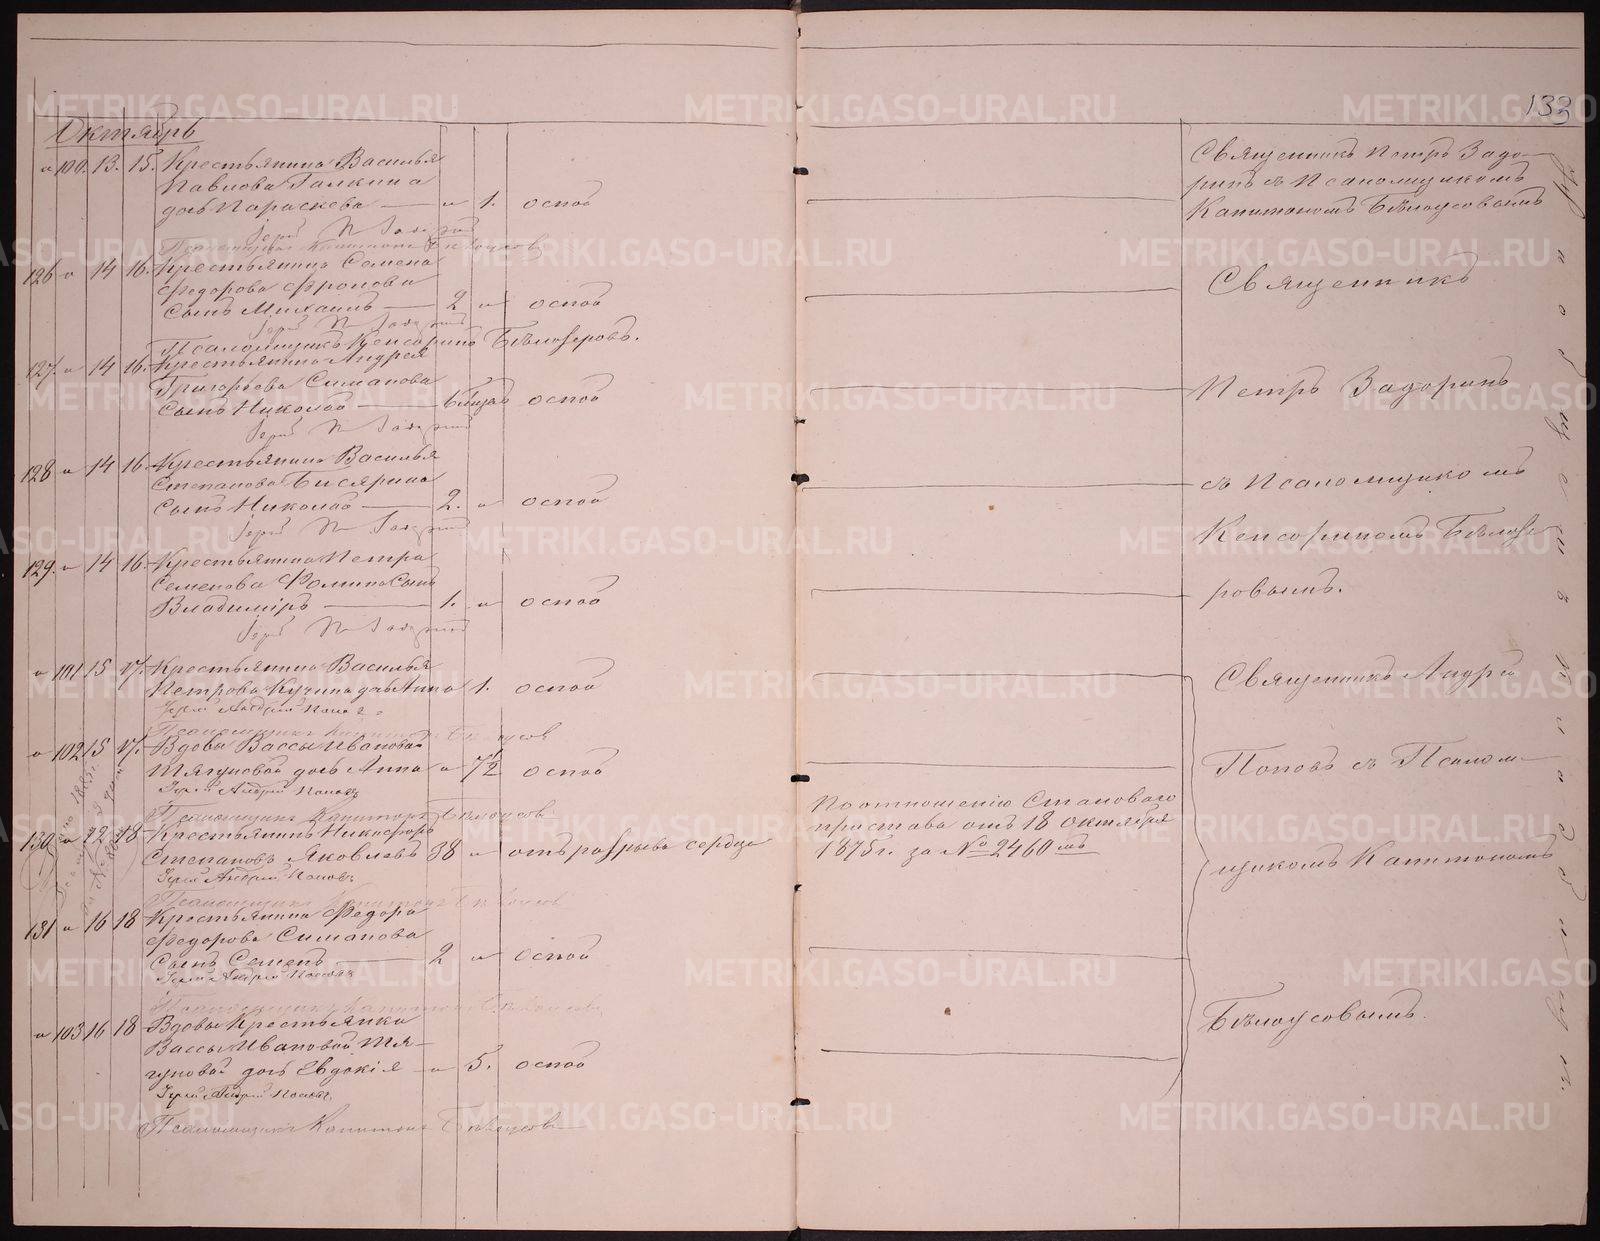 133
Октябрь
" 100. 13. 15. Крестьянина Василья
Павлова Галкина
дочь Параскева — " 1. оспой
Іерей П Задорин
Псаломщикъ Капитонъ Бѣлоусовъ
126 " 14 16. Крестьянина Семена
Федорова Фролова
Сынъ Михаилъ — 2 " оспой
Іерей П Задорин
Псаломщикъ Кенсоринъ Бѣлозеровъ.
127. " 14 16. Крестьянина Андрея
Григорьева Симанова
Сынъ Николай — оспой
Іерей П Задорин
128 " 14 16. Крестьянина Василья
Степанова Бисярина
Сынъ Николай — 2. " оспой
Іерей П Задорин
129. " 14 16. Крестьянина Петра
Семенова Фомина Сынъ
Владимiръ — 1. " оспой
Іерей П Задорин
" 101 15 17. Крестьянина Василья
Петрова Кузина дочь Анна 1. оспой
Іерей Андрей Попов
Псаломщикъ Капитонъ Бѣлоусов
" 102 15 17. Вдовы Вассы Ивановой
Тягуновой дочь Анна " 7½ оспой
Іерей Андрей Поповъ
Псаломщикъ Капитонъ Бѣлоусов
130 " 12 18 Крестьянинъ Никифоръ
Степановъ Яковлевъ 38 " отъ разрыва сердца
Іерей Андрей Поповъ
Псаломщикъ Капитонъ Бѣлоусов
131 " 16 18 Крестьянина Федора
Федорова Симанова
Сынъ Семенъ — 2 " оспой
Іерей Андрей Поповъ
Псаломщикъ Капитонъ Бѣлоусовъ
" 103 16 18 Вдовы Крестьянки
Вассы Ивановой Тя-
гуновой дочь Евдокія — " 5. оспой
Іерей Андрей Поповъ
Псаломщикъ Капитонъ Бѣлоусовъ
По отношенію Становаго
пристава отъ 18 Октября
1875 г. за № 2460 мъ
Священникъ Петръ Задо-
ринъ съ Псаломщикомъ
Капитономъ Бѣлоусовымъ
Священникъ
Петръ Задоринъ
съ Псаломщикомъ
Кенсориномъ Бѣлозе-
ровымъ.
Священникъ Андрей
Поповъ съ Псалом-
щикомъ Капитономъ
Бѣлоусовымъ.
METRIKI.GASO-URAL.RU